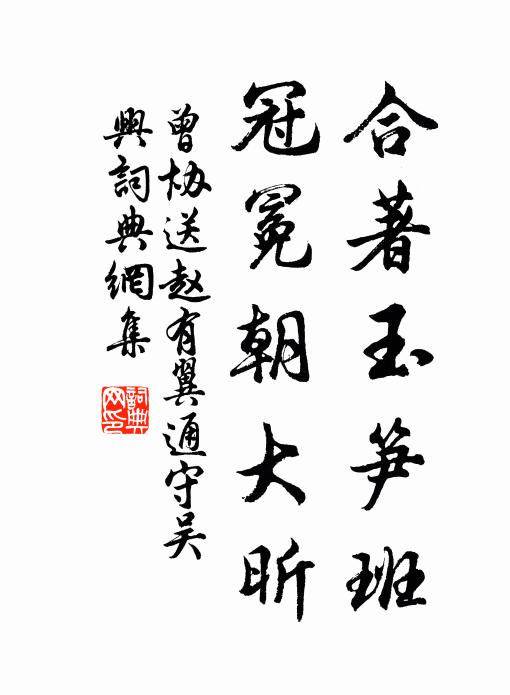 合著玉笋班
冠冕朝大昕
曾协送赵有翼通守吴
興詞典網集
詞典
网印